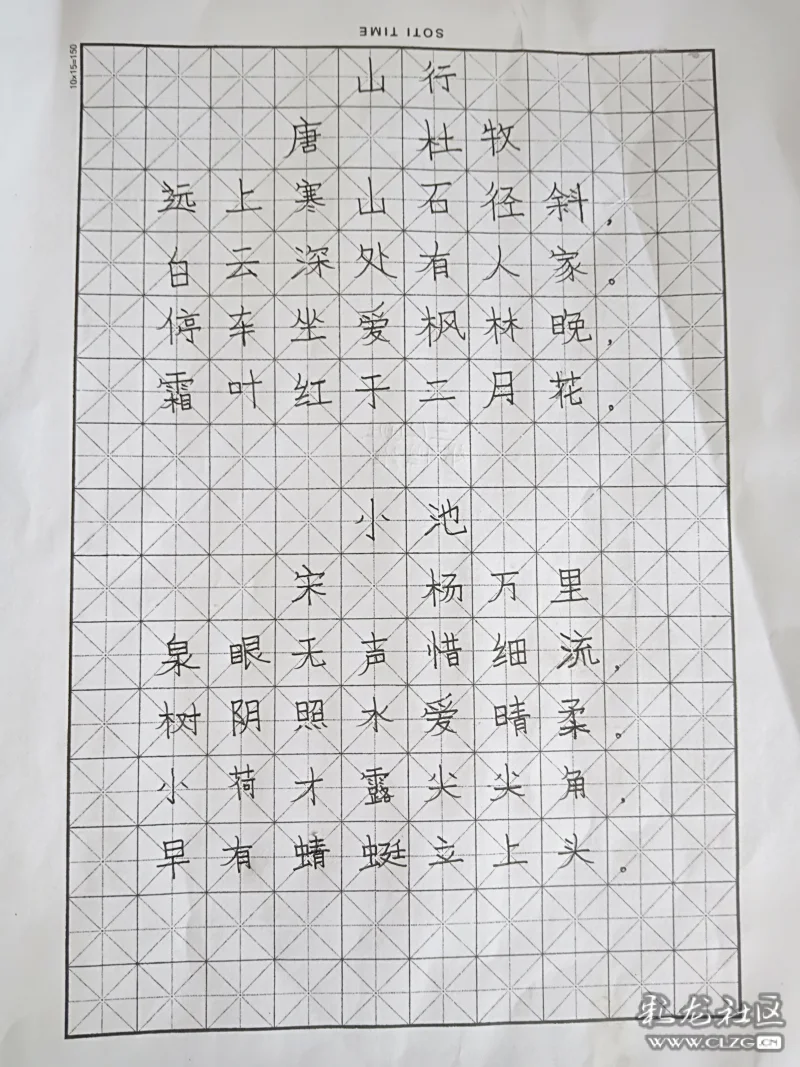 SOTI TIME
10×15=150
山行
唐 杜牧
远上寒山石径斜，
白云深处有人家。
停车坐爱枫林晚，
霜叶红于二月花。
小池
宋 杨万里
泉眼无声惜细流，
树阴照水爱晴柔。
小荷才露尖尖角，
早有蜻蜓立上头。
彩龙社区
WWW.CLZG.CN